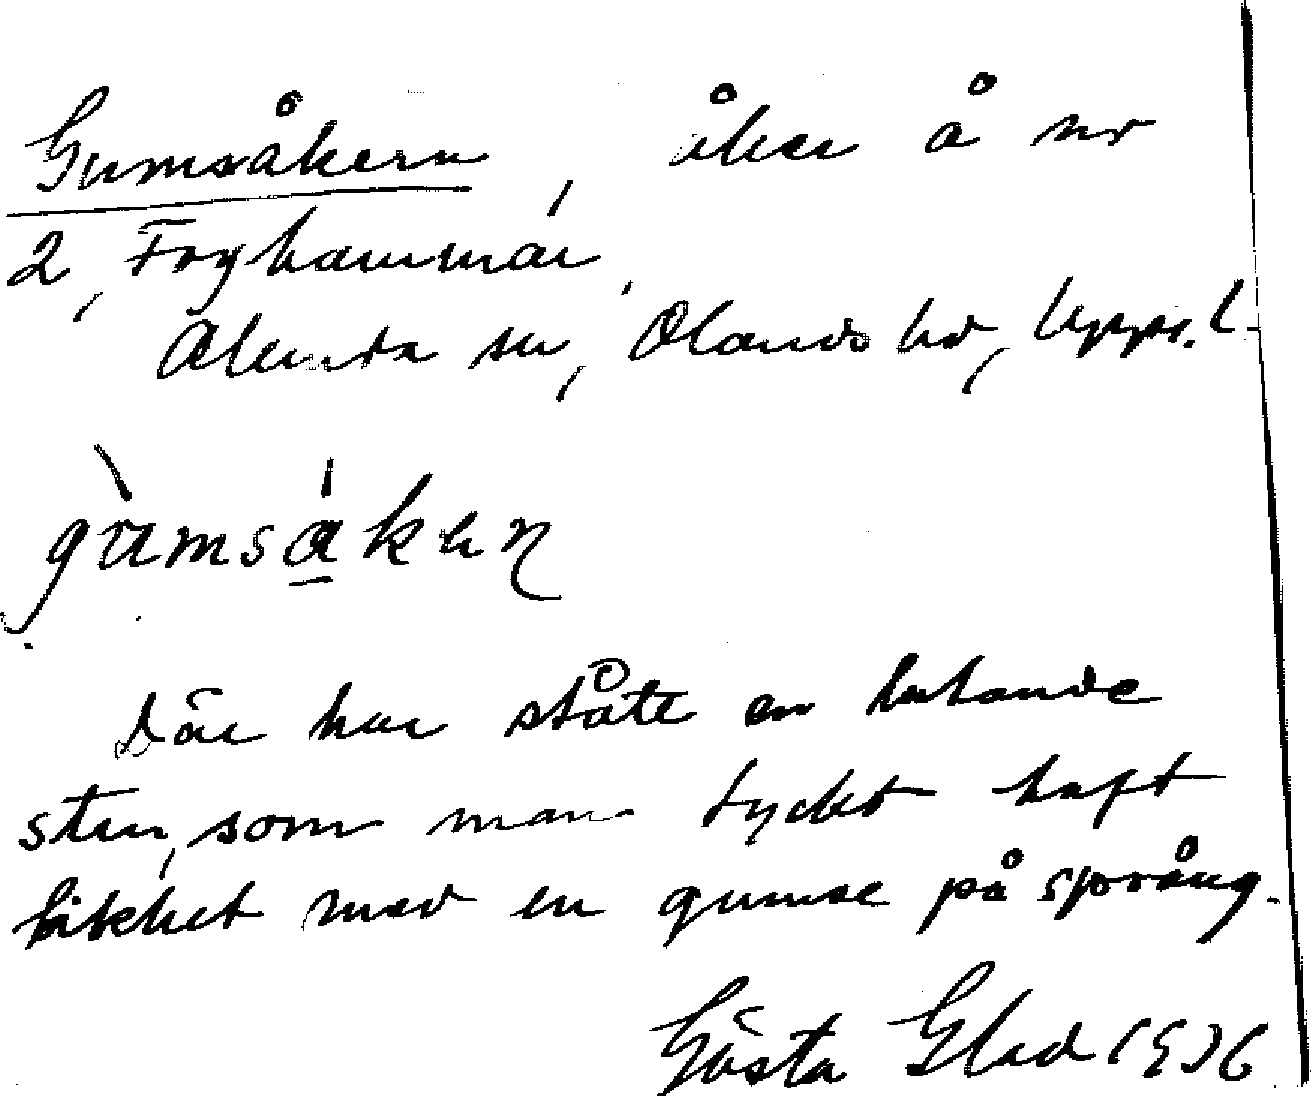 Gumsåkern, åker å nr
2, Foghammar,
Alunda sn, Olands hd, Upps. l.
gùmså̱ken
Där har stått en lutande
sten, som man tyckt haft
likhet med en gumse på språng.
Gösta Glad 1936